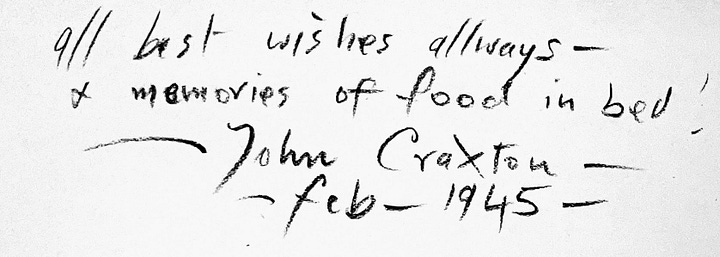 all best wishes allways —
& memories of food in bed!
— John Craxton —
— feb — 1945 —